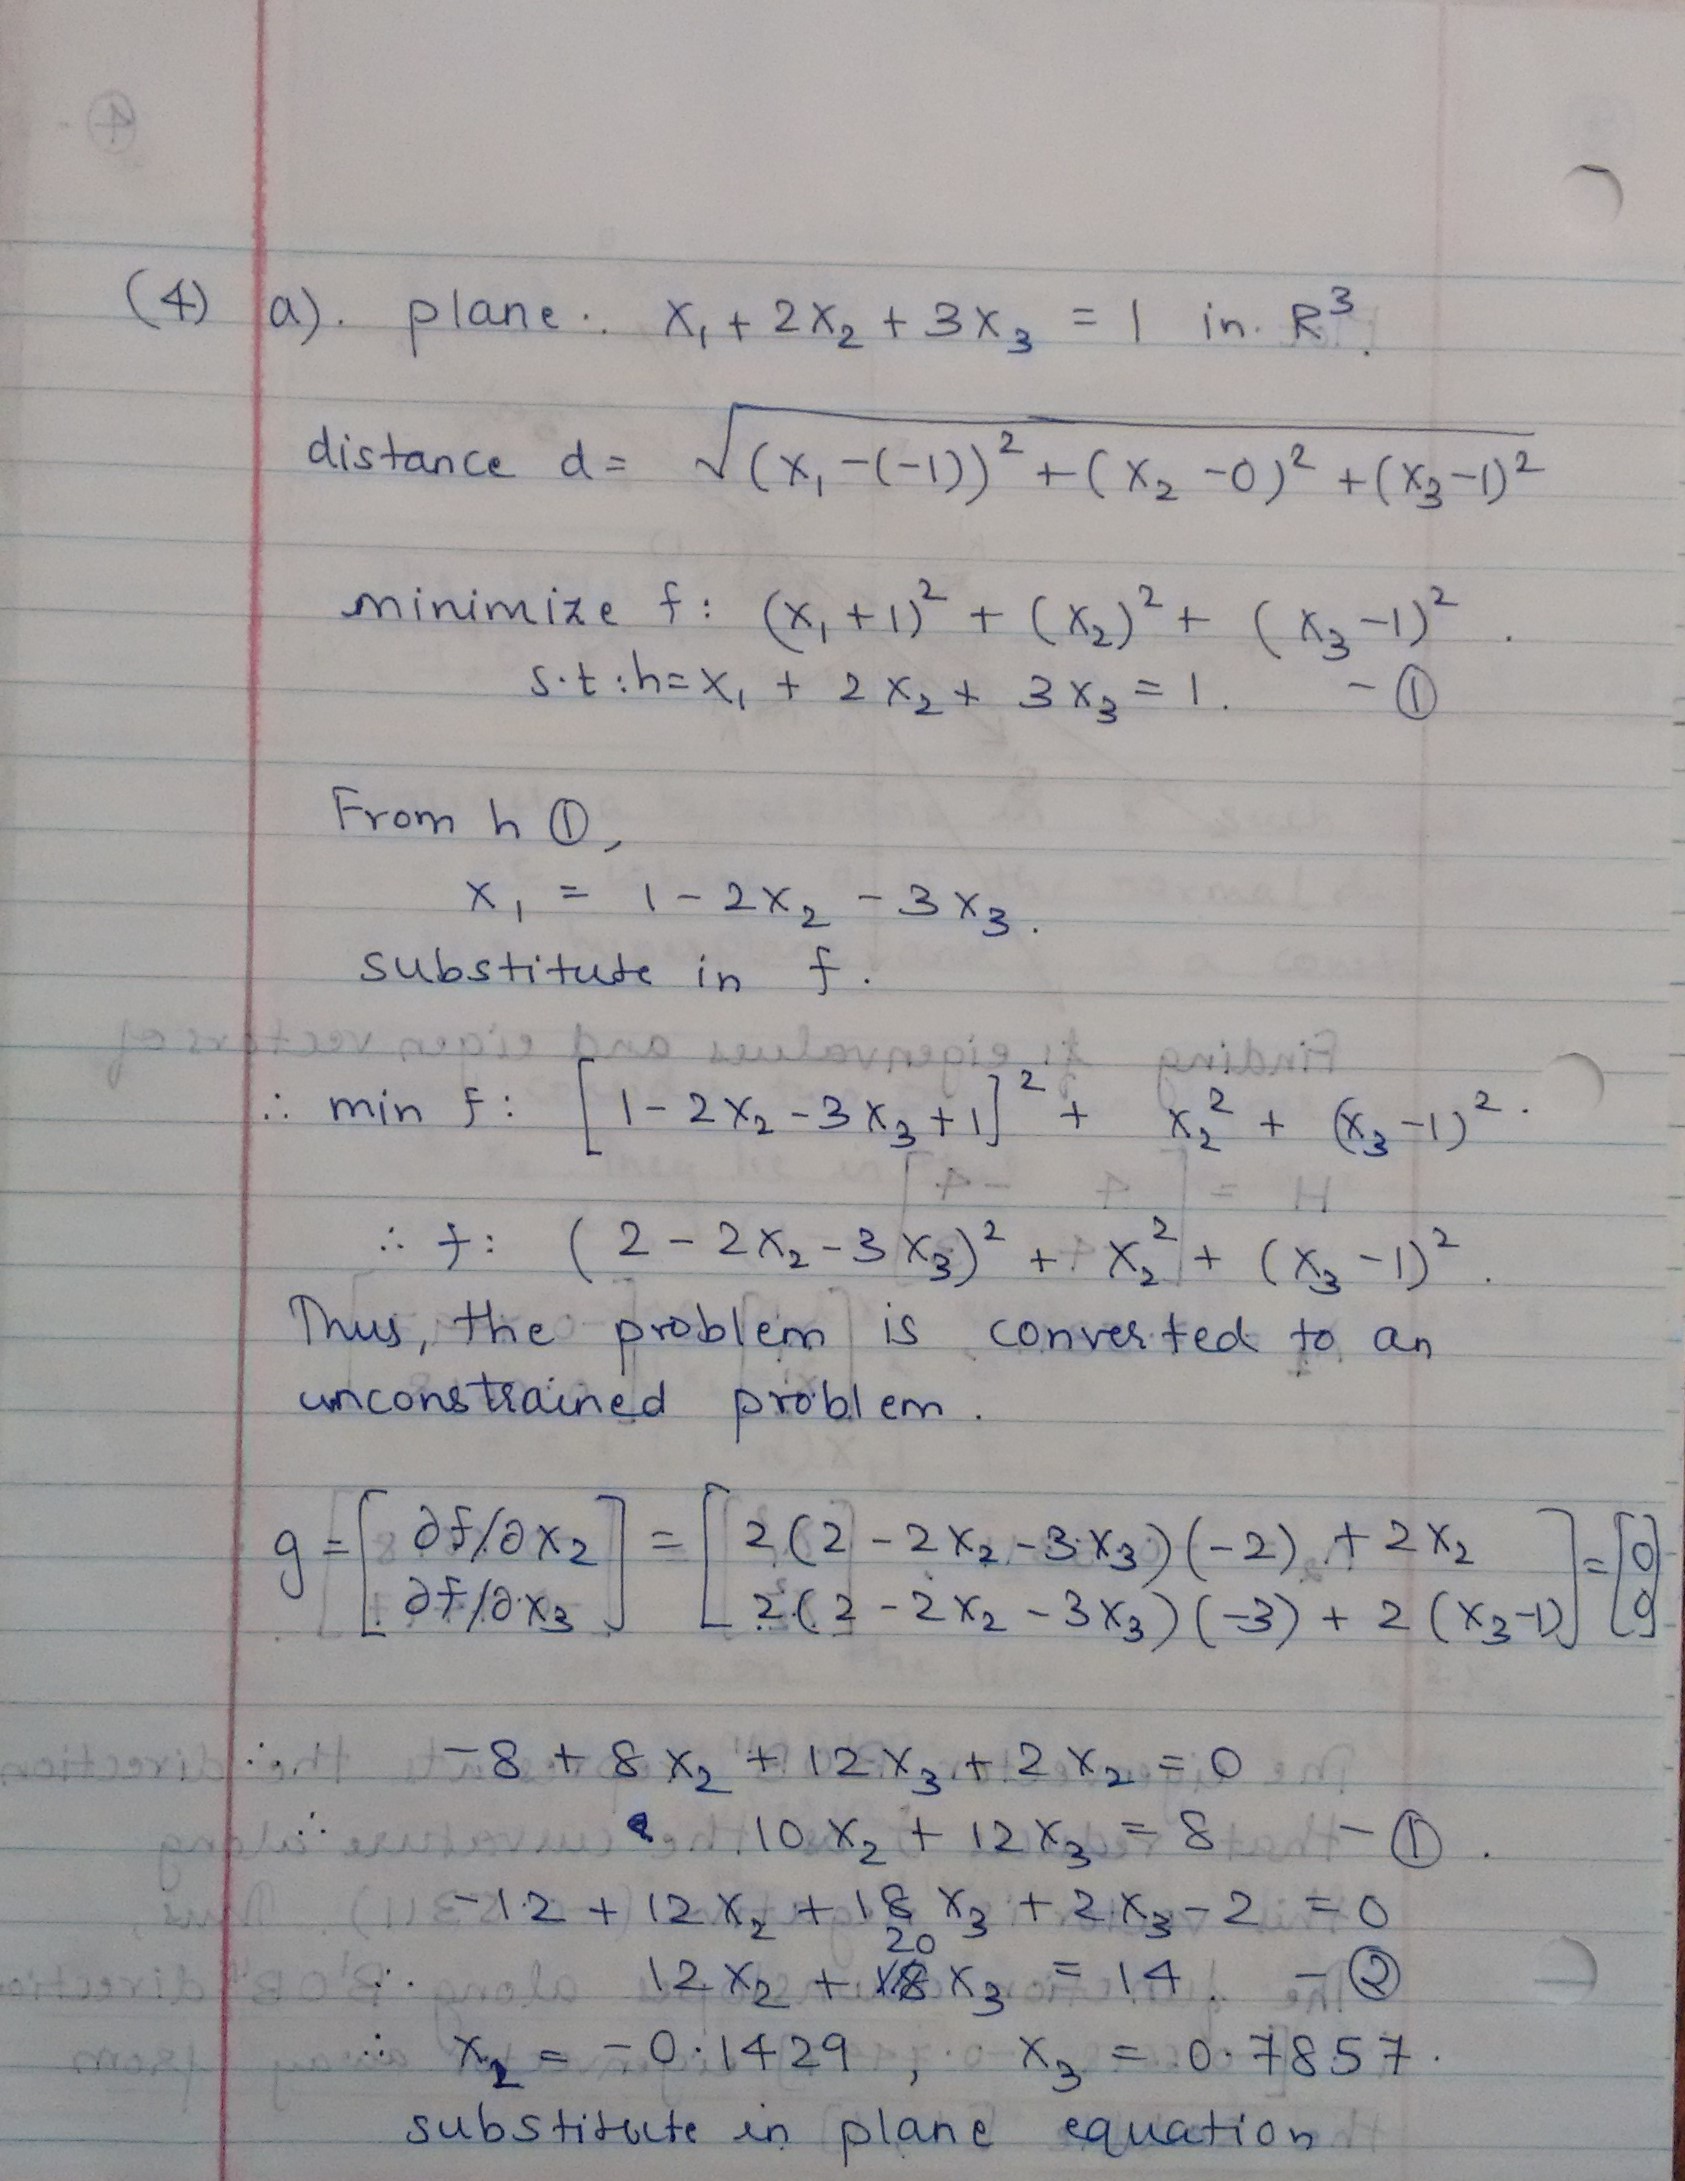 (4) a). plane : x₁ + 2x₂ + 3x₃ = 1 in R³.
distance d = √(x₁ -(-1))² + (x₂ -0)² + (x₃-1)²
minimize f: (x₁ + 1)² + (x₂)² + (x₃ -1)² .
s.t : h = x₁ + 2x₂ + 3x₃ = 1. - ①
From h ①,
x₁ = 1 - 2x₂ - 3x₃.
substitute in f.
∴ min f: [1 - 2x₂ - 3x₃ + 1]² + x₂² + (x₃ -1)².
∴ f: (2 - 2x₂ - 3x₃)² + x₂² + (x₃ -1)².
Thus, the problem is converted to an
unconstrained problem.
g = [∂f/∂x₂ ; ∂f/∂x₃] = [2(2 - 2x₂ - 3x₃)(-2) + 2x₂ ; 2(2 - 2x₂ - 3x₃)(-3) + 2(x₃-1)] = [0 ; 0]
∴ -8 + 8x₂ + 12x₃ + 2x₂ = 0
∴ 10x₂ + 12x₃ = 8 - ①.
-12 + 12x₂ + 18x₃ + 2x₃ - 2 = 0
∴ 12x₂ + 20x₃ = 14. - ②
∴ x₂ = -0.1429 , x₃ = 0.7857.
substitute in plane equation